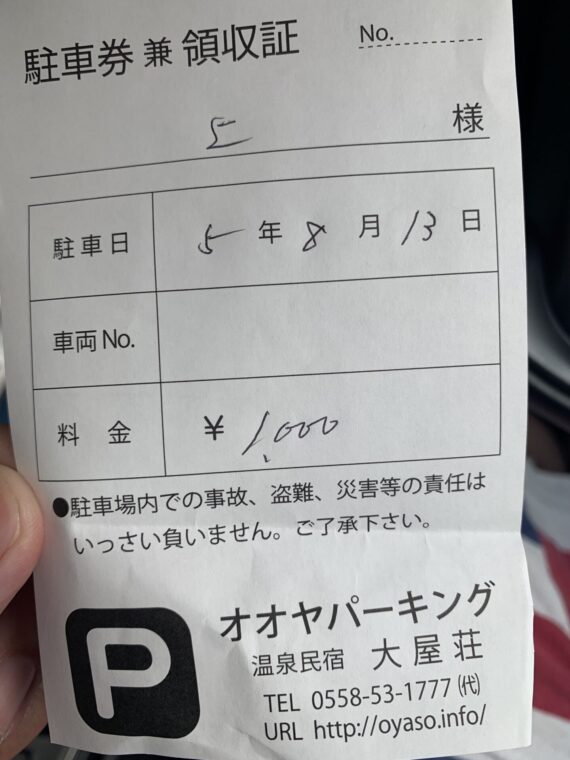 駐車券 兼 領収証 No.
様
駐車日 5 年 8 月 13 日
車両No.
料 金 ¥ 1,000
●駐車場内での事故、盗難、災害等の責任は
いっさい負いません。ご了承下さい。
P
オオヤパーキング
温泉民宿 大屋荘
TEL 0558-53-1777㈹
URL http://oyaso.info/